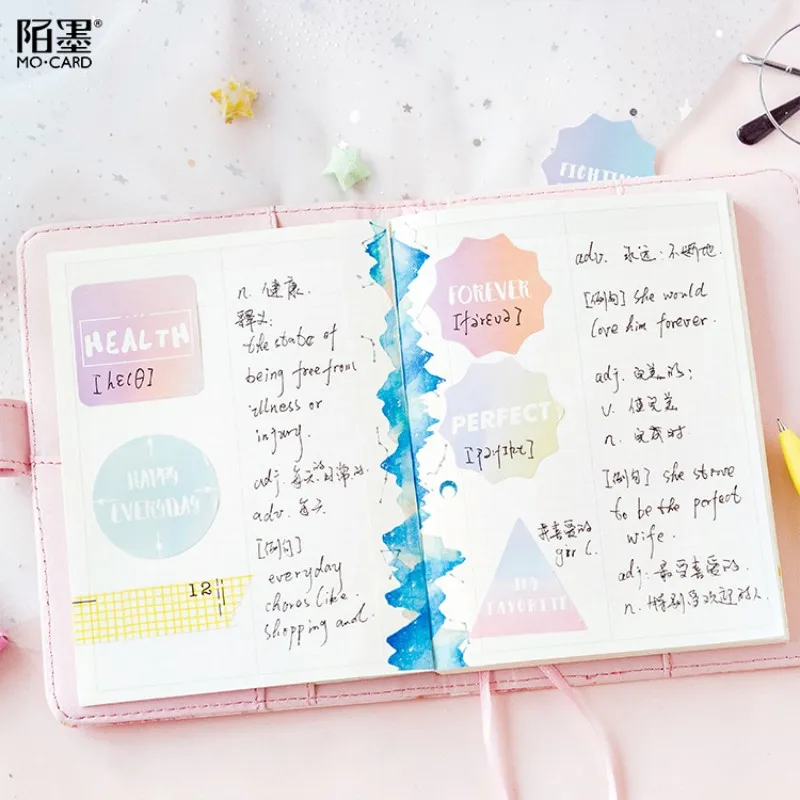 陌墨®
MO·CARD
FIGHTING
HEALTH
[hɛlθ]
HAPPY
EVERYDAY
12
n. 健康.
释义:
the state of
being free from
illness or
injury.
adj. 每天的 日常的.
adv. 每天
[例句]
everyday
chores like
shopping and
FOREVER
[fərevə]
PERFECT
MY
FAVORITE
我喜爱的
girl.
adv. 永远; 不断地.
[例句] she would
love him forever.
adj. 完美的;
v. 使完美
n. 完成时
[例句] she strove
to be the perfect
wife.
adj. 最受喜爱的.
n. 特别受欢迎的人.